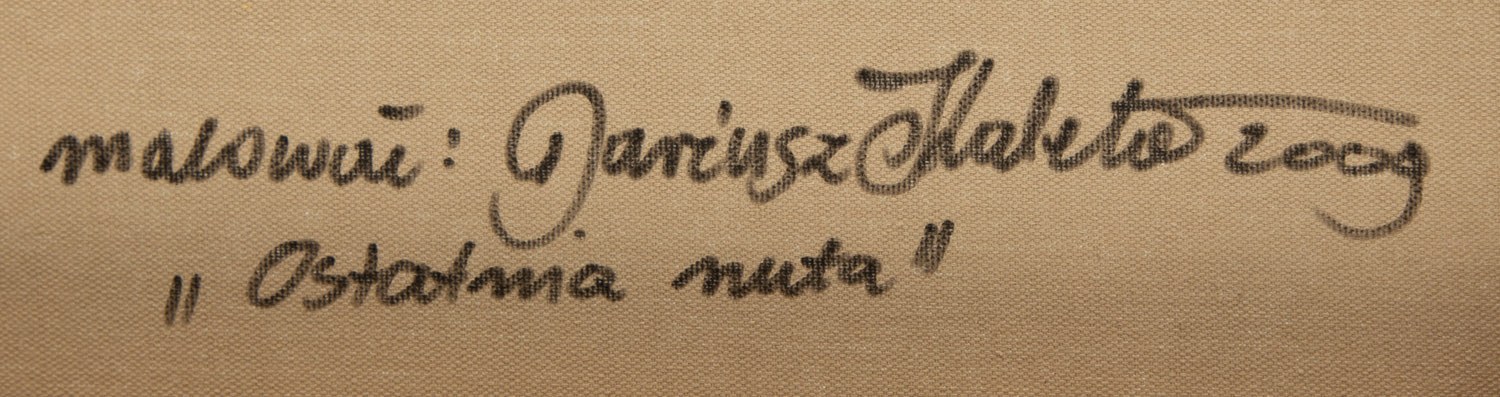 malował: Dariusz Kaleta 2009
„Ostatnia nuta"